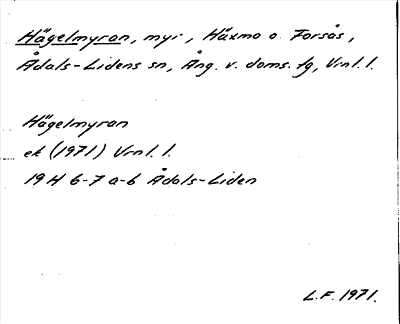 Hägelmyran, myr, Häxmo o. Forsås,
Ådals-Lidens sn, Ång. v. doms. fg, Vrnl. l.
Hägelmyran
ek (1971) Vrnl. l.
19H 6-7 a-b Ådals-Liden
L.F. 1971.